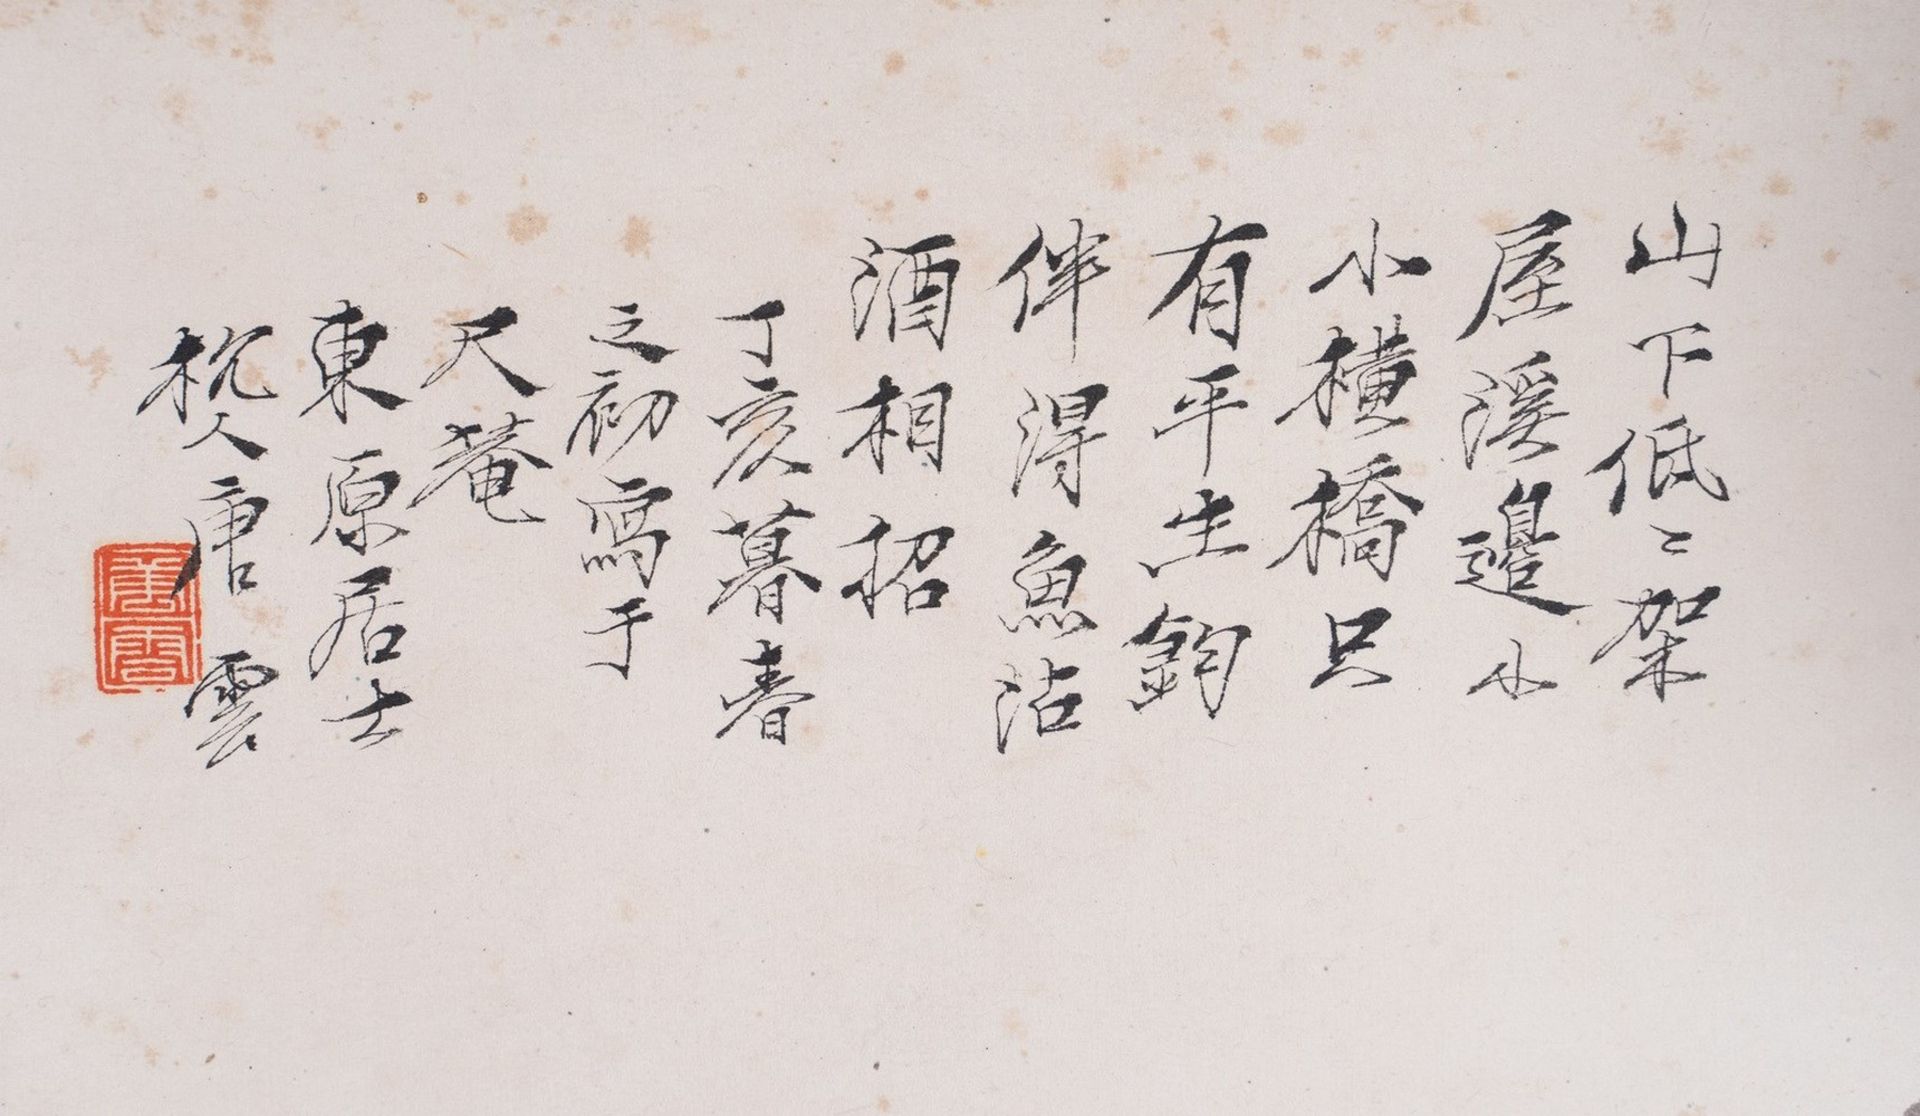 山下低〻架
屋溪邊小
小橫橋只
有平生釣
伴得魚沽
酒相招
丁亥暮春
之初寫于
尺菴
東原居士
杭人唐雲